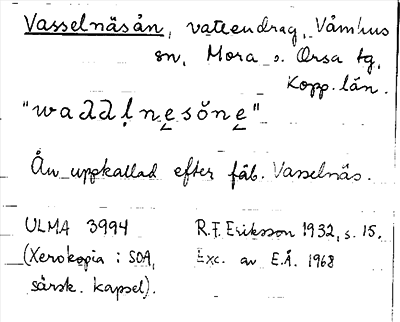 Vasselnäsån, vattendrag, Våmhus
sn, Mora o. Orsa tg,
Kopp. län.
"waddḷnesŏne"
Ån uppkallad efter fäb. Vasselnäs.
ULMA 3994 R.F. Eriksson 1932, s. 15.
(Xerokopia i SOA, Exc. av E.Å. 1968
särsk. kapsel).